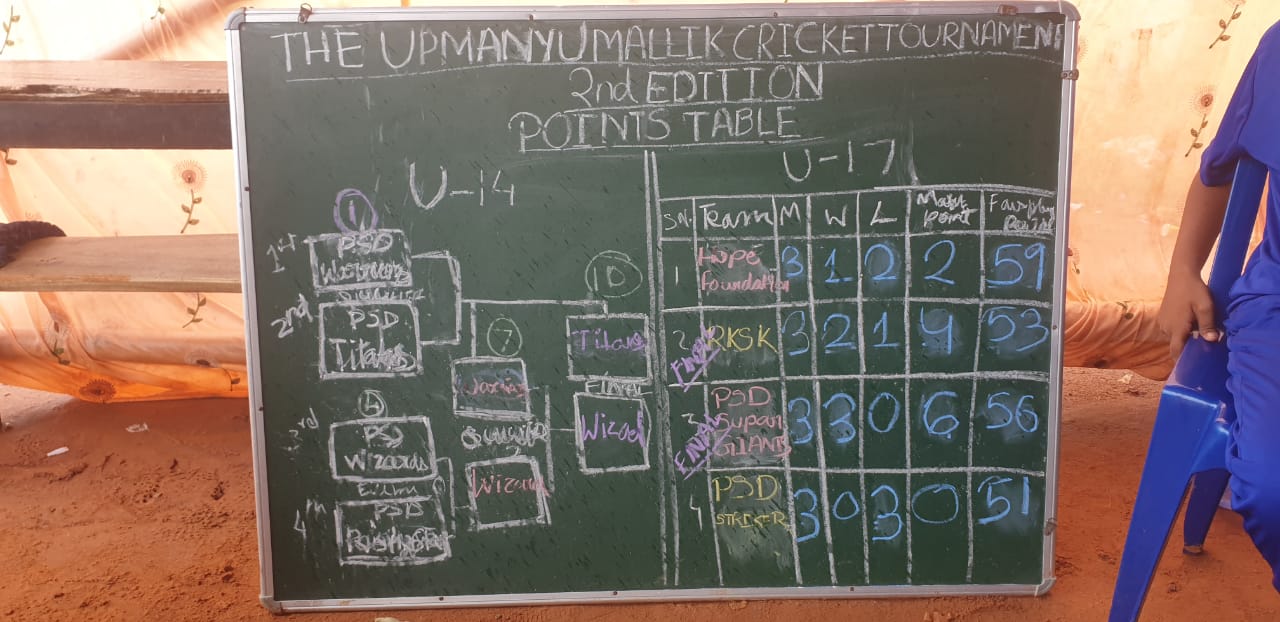 THE UPMANYU MALLIK CRICKET TOURNAMENT
2nd EDITION
POINTS TABLE
U-14
1
1st PSD
2nd PSD
Titans
3rd PSD
Wizards
4th PSD
7
Wizard
10
Titans
Final
Wizard
U-17
S.N. Team M W L Match point Fairplay Point
1 Hope Foundation 3 1 2 2 59
2 RKSK 3 2 1 4 53
FINAL
3 PSD Super GIANT 3 3 0 6 56
FINAL
4 PSD STRIKER 3 0 3 0 51